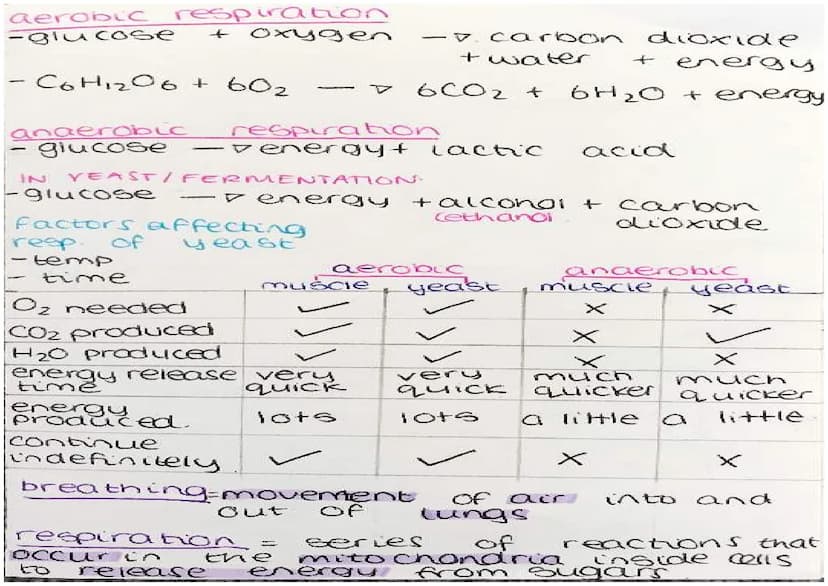 aerobic respiration
- glucose + oxygen → carbon dioxide
+ water + energy
- C6H12O6 + 6O2 → 6CO2 + 6H2O + energy
anaerobic respiration
- glucose → energy + lactic acid
IN YEAST/FERMENTATION.
- glucose → energy + alcohol + carbon
(ethanol dioxide
factors affecting
resp. of yeast
- temp
- time
aerobic anaerobic
muscle yeast muscle yeast
O2 needed ✓ ✓ × ×
CO2 produced ✓ ✓ × ✓
H2O produced ✓ ✓ × ×
energy release very very much much
time quick quick quicker quicker
energy
produced. lots lots a little a little
continue
indefinitely ✓ ✓ × ×
breathing = movement of air into and
out of lungs
respiration = series of reactions that
occur in the mitochondria inside cells
to release energy from sugars